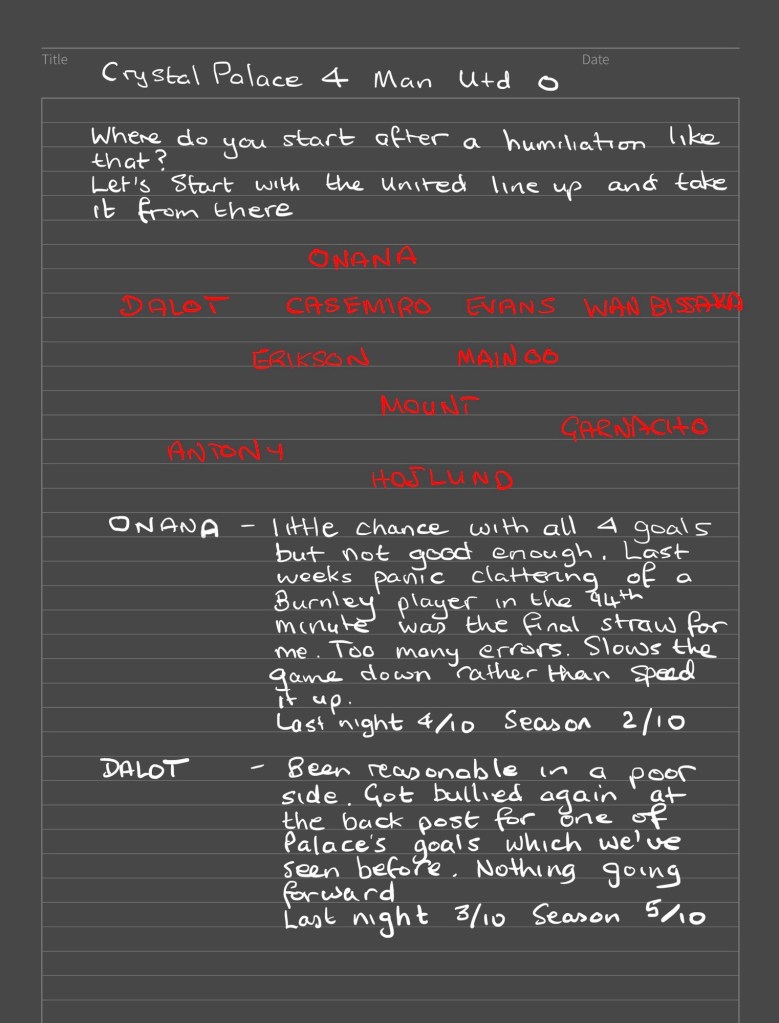 Title
Date
Crystal Palace 4 Man Utd 0
Where do you start after a humiliation like
that?
Let's Start with the United line up and take
it from there
ONANA
DALOT CASEMIRO EVANS WAN BISSAKA
ERIKSON MAINOO
MOUNT
GARNACHO
ANTONY
HOJLUND
ONANA - little chance with all 4 goals
but not good enough. Last
weeks panic clattering of a
Burnley player in the 94th
minute was the final straw for
me. Too many errors. Slows the
game down rather than speed
it up.
Last night 4/10 Season 2/10
DALOT - Been reasonable in a poor
side. Got bullied again at
the back post for one of
Palace's goals which we've
seen before. Nothing going
forward
Last night 3/10 Season 5/10